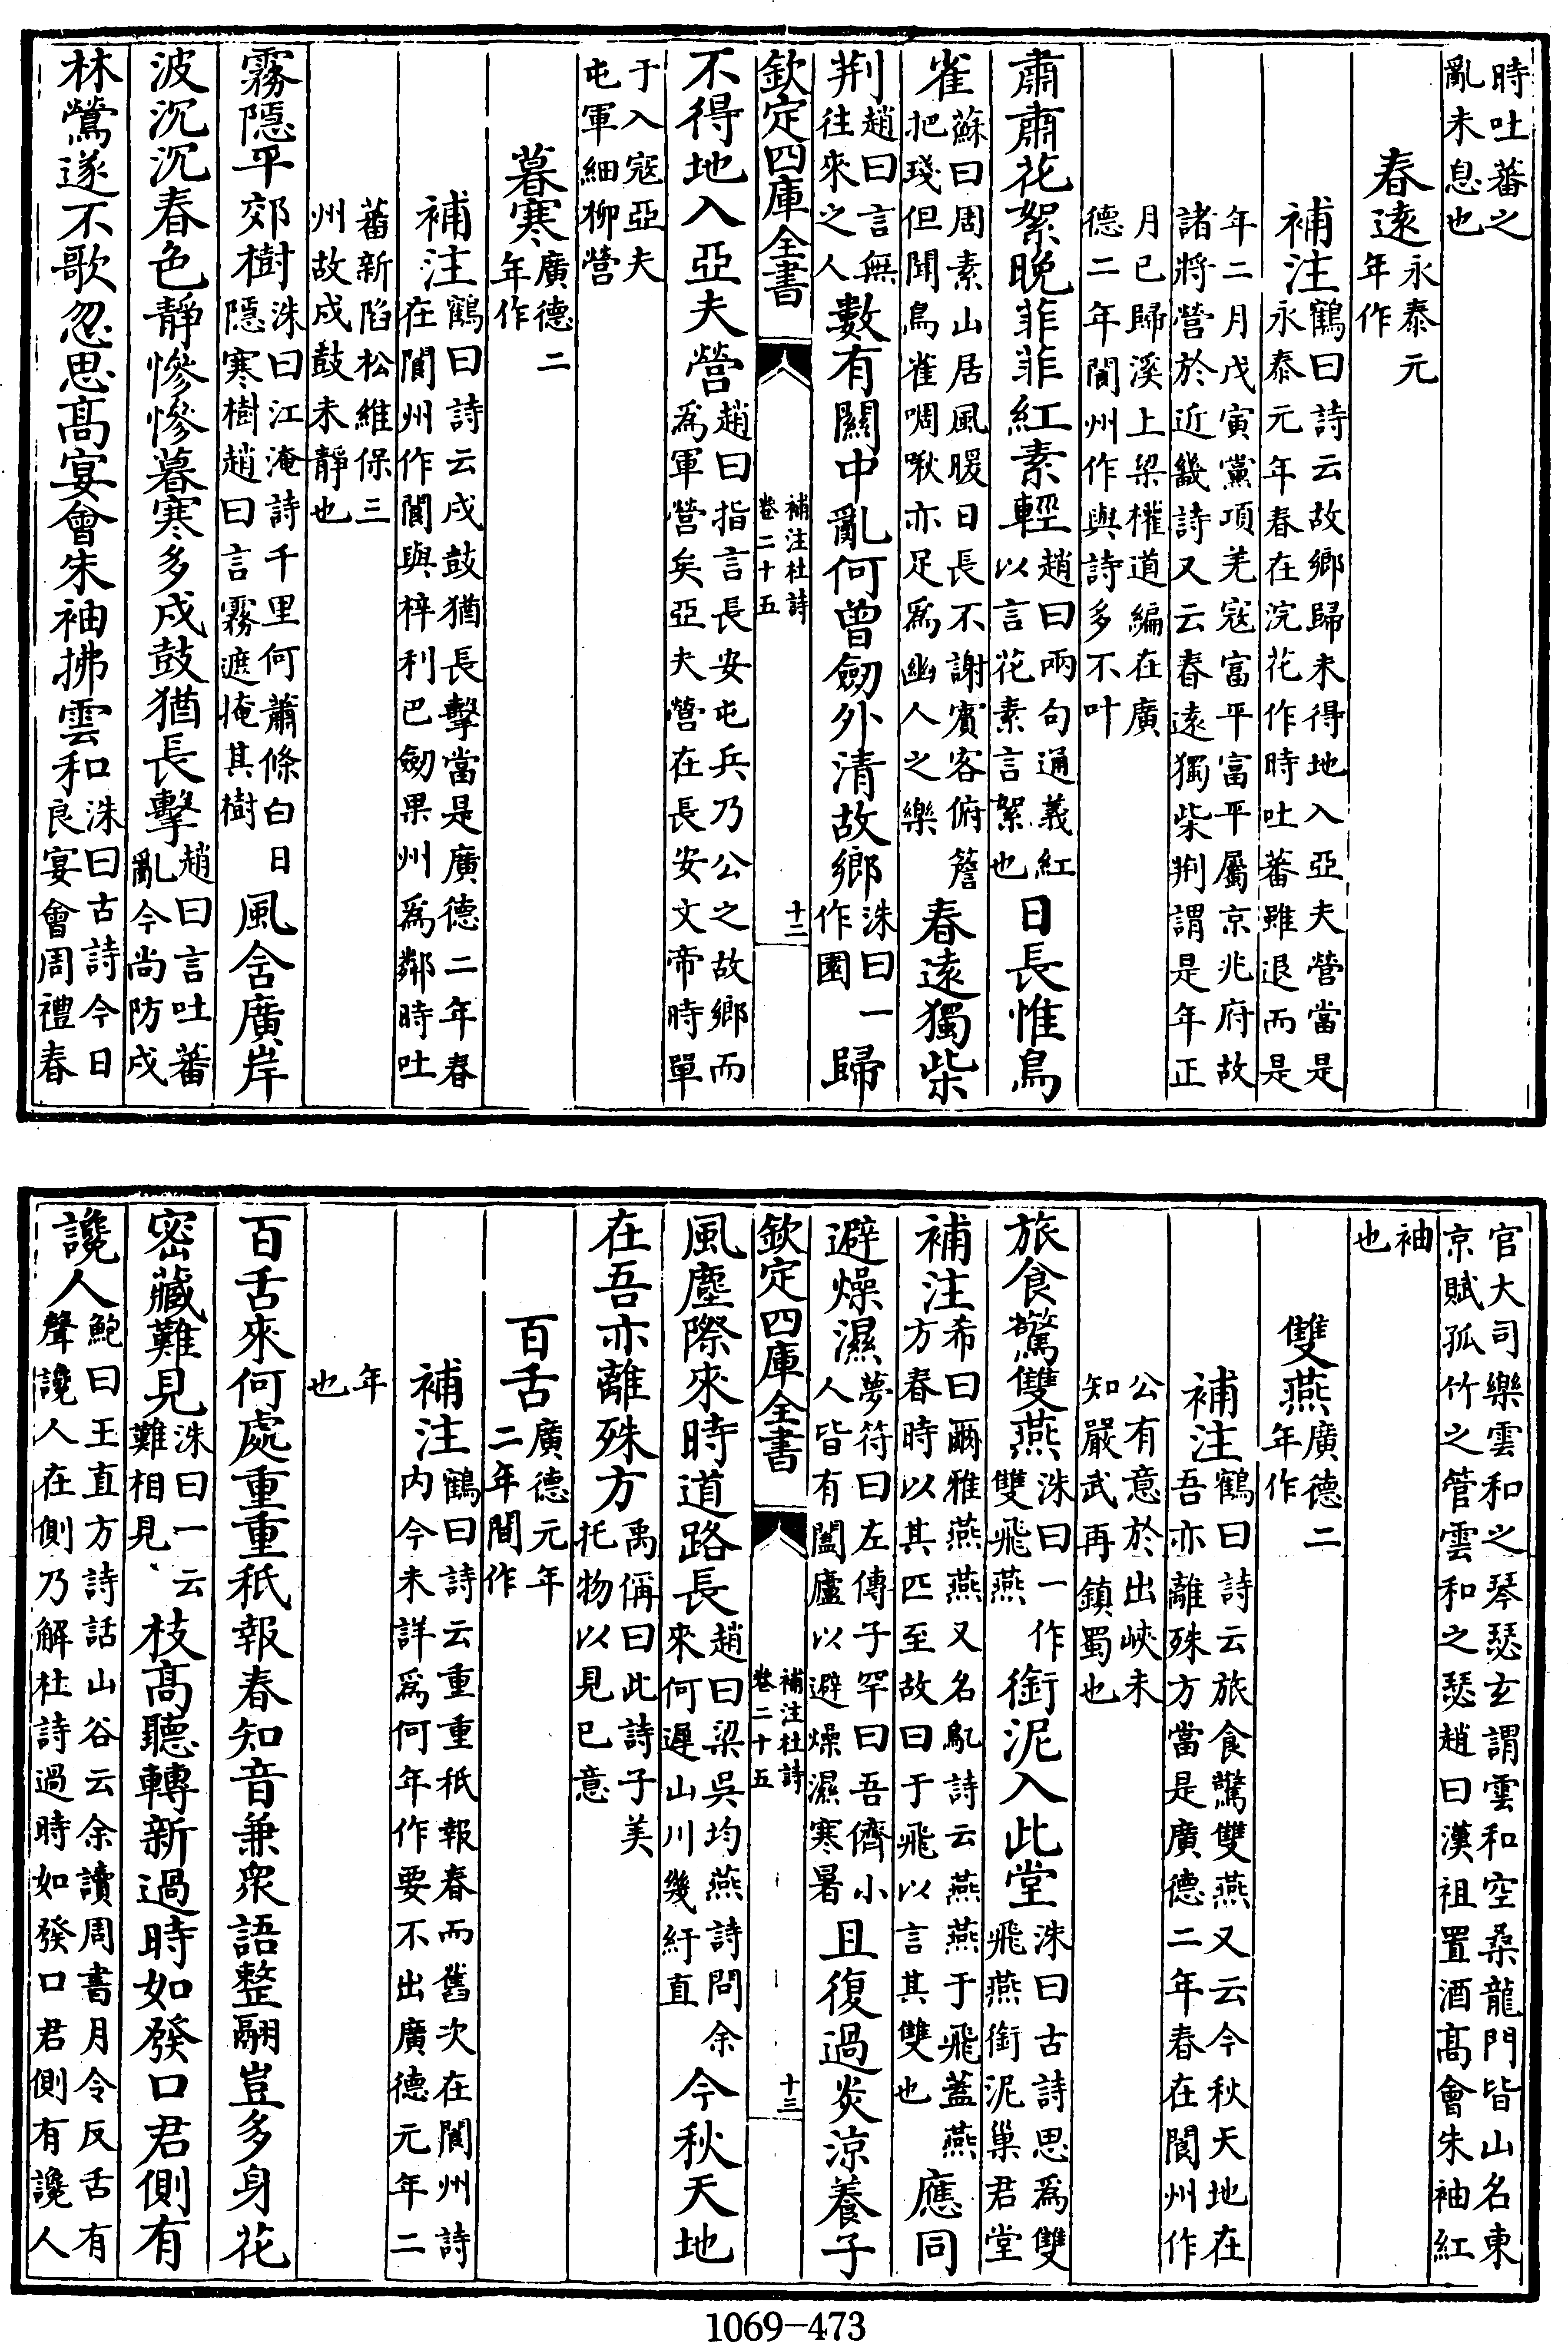 時吐蕃之
亂未息也
春遠永泰元
年作
補注鶴曰詩云故鄉歸未得地入亞夫營當是
永泰元年春在浣花作時吐蕃雖退而是
年二月戊寅黨項羌寇富平富平屬京兆府故
諸將營於近畿詩又云春遠獨柴荆謂是年正
月已歸溪上梁權道編在廣
德二年閬州作與詩多不叶
肅肅花絮晚菲菲紅素輕趙曰兩句通義紅
以言花素言絮也日長惟鳥
雀蘇曰周素山居風暖日長不謝賓客俯簷
把琖但聞鳥雀啁啾亦足為幽人之樂春遠獨柴
荆趙曰言無
往來之人數有關中亂何曾劒外清故鄉洙曰一
作園歸
欽定四庫全書
補注杜詩
卷二十五
十二
不得地入亞夫營趙曰指言長安屯兵乃公之故鄉而
為軍營矣亞夫營在長安文帝時單
于入寇亞夫
屯軍細柳營
暮寒廣德二
年作
補注鶴曰詩云戍鼓猶長擊當是廣德二年春
在閬州作閬與梓利巴劒果州為鄰時吐
蕃新陷松維保三
州故戍鼓未靜也
霧隱平郊樹洙曰江淹詩千里何蕭條白日
隱寒樹趙曰言霧遮掩其樹風含廣岸
波沉沉春色靜慘慘暮寒多戍鼓猶長擊趙曰言吐蕃
亂今尚防戍
林鶯遂不歌忽思高宴會朱袖拂雲和洙曰古詩今日
良宴會周禮春
官大司樂雲和之琴瑟玄謂雲和空桑龍門皆山名東
京賦孤竹之管雲和之瑟趙曰漢祖置酒高會朱袖紅
袖
也
雙燕廣德二
年作
補注鶴曰詩云旅食驚雙燕又云今秋天地在
吾亦離殊方當是廣德二年春在閬州作
公有意於出峽未
知嚴武再鎮蜀也
旅食驚雙燕洙曰一作
雙飛燕銜泥入此堂洙曰古詩思為雙
飛燕銜泥巢君堂應同
補注希曰爾雅燕燕又名鳦詩云燕燕于飛蓋燕
方春時以其匹至故曰于飛以言其雙也
避燥濕夢符曰左傳子罕曰吾儕小
人皆有闔廬以避燥濕寒暑且復過炎涼養子
欽定四庫全書
補注杜詩
卷二十五
十三
風塵際來時道路長趙曰梁吳均燕詩問余
來何遲山川幾紆直今秋天地
在吾亦離殊方禹偁曰此詩子美
托物以見已意
百舌廣德元年
二年間作
補注鶴曰詩云重重秖報春而舊次在閬州詩
内今未詳為何年作要不出廣德元年二
年
也
百舌來何處重重秖報春知音兼衆語整翮豈多身花
密藏難見洙曰一云
難相見枝高聽轉新過時如發口君側有
讒人鮑曰王直方詩話山谷云余讀周書月令反舌有
聲讒人在側乃解杜詩過時如發口君側有讒人
1069-473